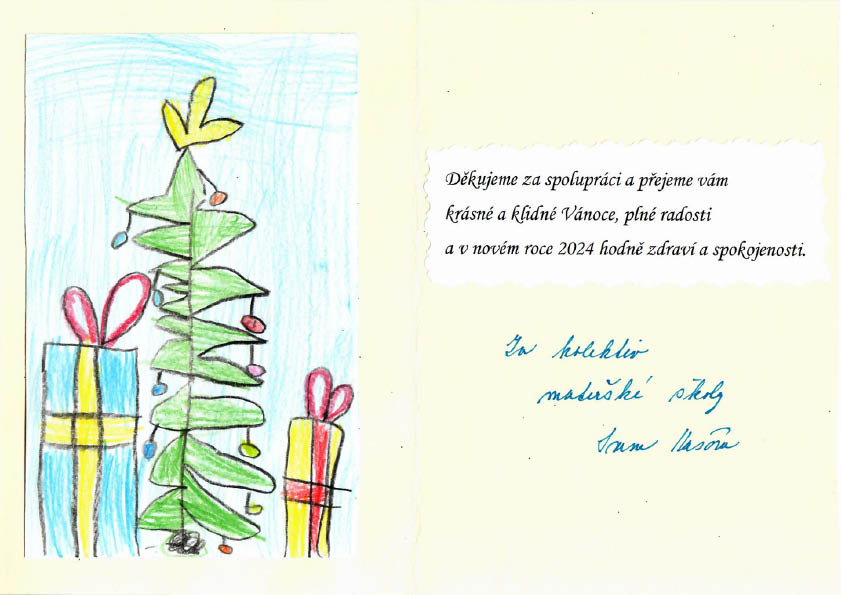 Děkujeme za spolupráci a přejeme vám
krásné a klidné Vánoce, plné radosti
a v novém roce 2024 hodně zdraví a spokojenosti.
Za kolektiv
mateřské školy